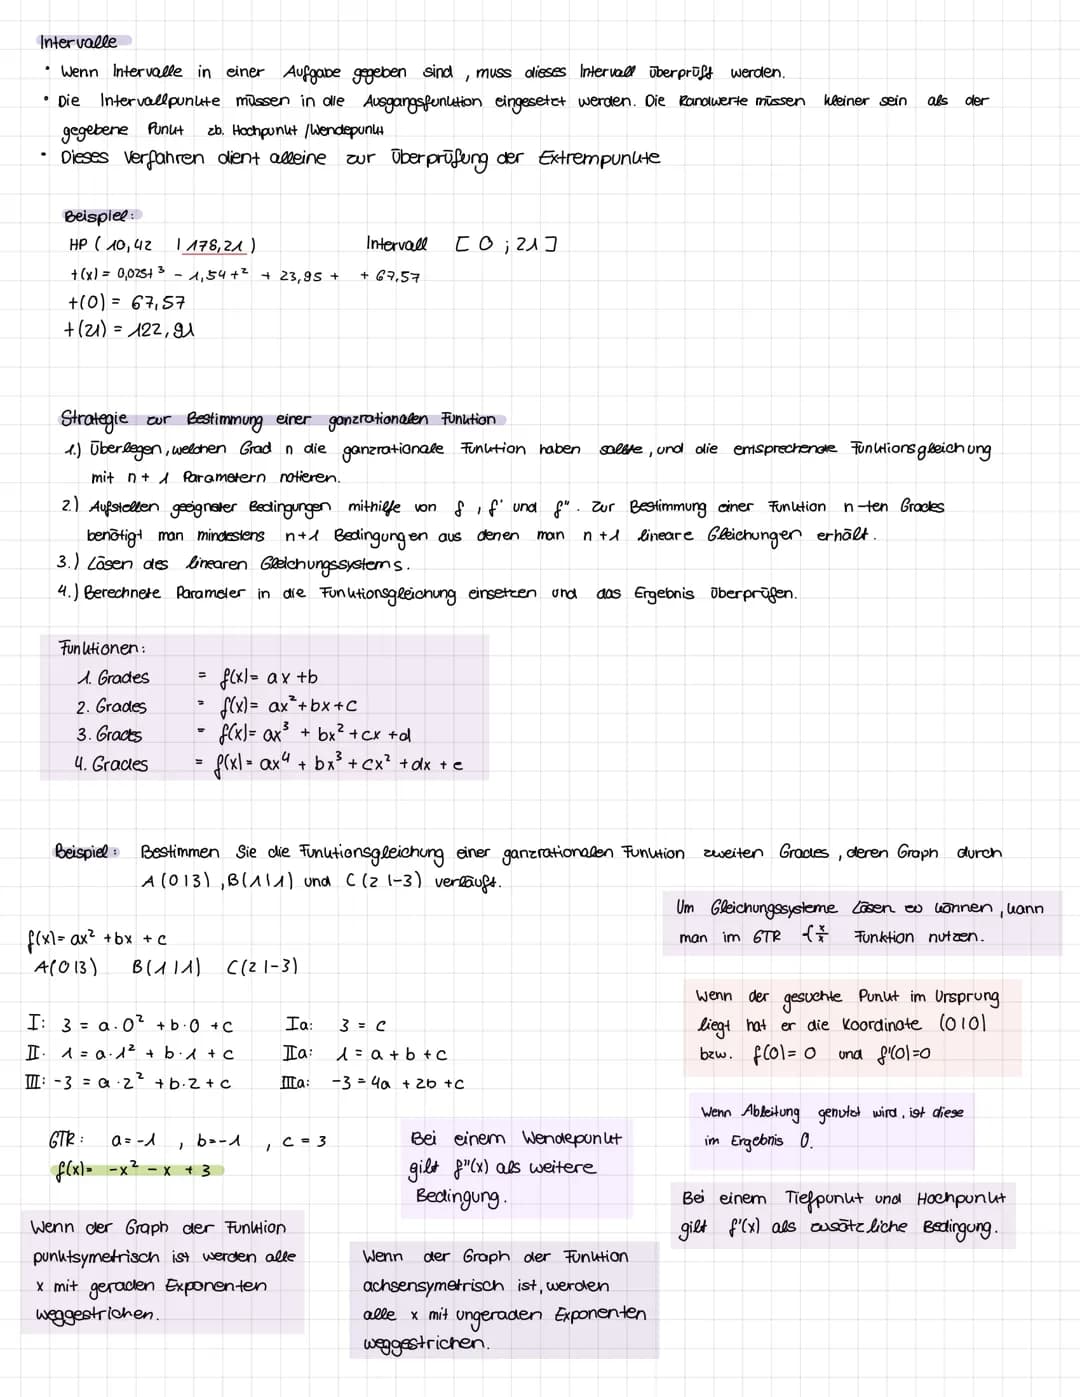 Intervalle
• Wenn Intervalle in einer Aufgabe gegeben sind, muss dieses Intervall überprüft werden.
• Die Intervallpunkte müssen in die Ausgangsfunktion eingesetzt werden. Die Randwerte müssen kleiner sein als der
gegebene Punkt zb. Hochpunkt /Wendepunkt
• Dieses Verfahren dient alleine zur Überprüfung der Extrempunkte
Beispiel:
HP ( 10,42 | 178,21 ) Intervall [ 0 ; 21 ]
t(x) = 0,025t³ - 1,54t² + 23,95 t + 67,57
t(0) = 67,57
t(21) = 122,91
Strategie zur Bestimmung einer ganzrationalen Funktion
1.) Überlegen, welchen Grad n die ganzrationale Funktion haben sollte, und die entsprechende Funktionsgleichung
mit n + 1 Parametern notieren.
2.) Aufstellen geeigneter Bedingungen mithilfe von f, f' und f". Zur Bestimmung einer Funktion n-ten Grades
benötigt man mindestens n+1 Bedingungen aus denen man n+1 lineare Gleichungen erhält.
3.) Lösen des linearen Gleichungssystems.
4.) Berechnete Parameter in die Funktionsgleichung einsetzen und das Ergebnis überprüfen.
Funktionen:
1. Grades = f(x) = ax + b
2. Grades = f(x) = ax² + bx + c
3. Grades = f(x) = ax³ + bx² + cx + d
4. Grades = f(x) = ax⁴ + bx³ + cx² + dx + e
Beispiel: Bestimmen Sie die Funktionsgleichung einer ganzrationalen Funktion zweiten Grades, deren Graph durch
A(0|3), B(1|1) und C(2|-3) verläuft.
Um Gleichungssysteme lösen zu können, kann
man im GTR Funktion nutzen.
f(x) = ax² + bx + c
A(0|3) B(1|1) C(2|-3)
Wenn der gesuchte Punkt im Ursprung
liegt hat er die Koordinate (0|0)
bzw. f(0) = 0 und f'(0) = 0
I: 3 = a·0² + b·0 + c Ia: 3 = c
II: 1 = a·1² + b·1 + c IIa: 1 = a + b + c
III: -3 = a·2² + b·2 + c IIIa: -3 = 4a + 2b + c
Wenn Ableitung genutzt wird, ist diese
im Ergebnis 0.
GTR: a = -1, b = -1, c = 3
f(x) = -x² - x + 3
Bei einem Wendepunkt
gilt f"(x) als weitere
Bedingung.
Bei einem Tiefpunkt und Hochpunkt
gilt f'(x) als zusätzliche Bedingung.
Wenn der Graph der Funktion
punktsymetrisch ist werden alle
x mit geraden Exponenten
weggestrichen.
Wenn der Graph der Funktion
achsensymetrisch ist, werden
alle x mit ungeraden Exponenten
weggestrichen.